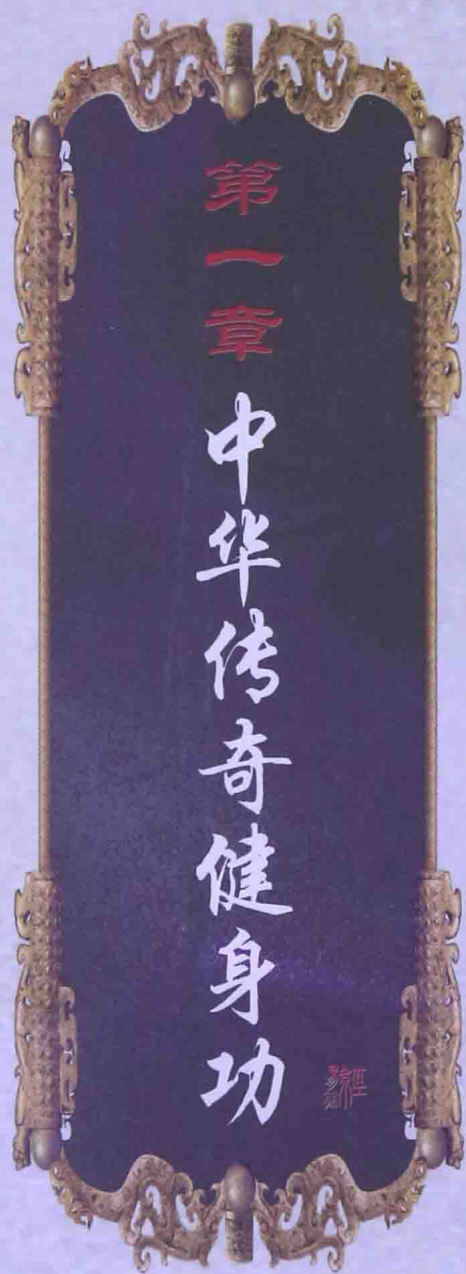 第一章
中华传奇健身功